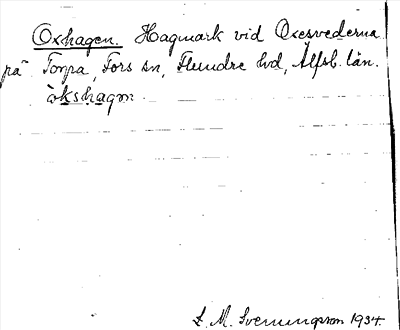 Oxhagen. Hagmark vid Oxesvederna
på Torpa, Fors sn, Flundre hd, Älfsb. län.
òkshagen.
L. M. Svenungsson 1934.